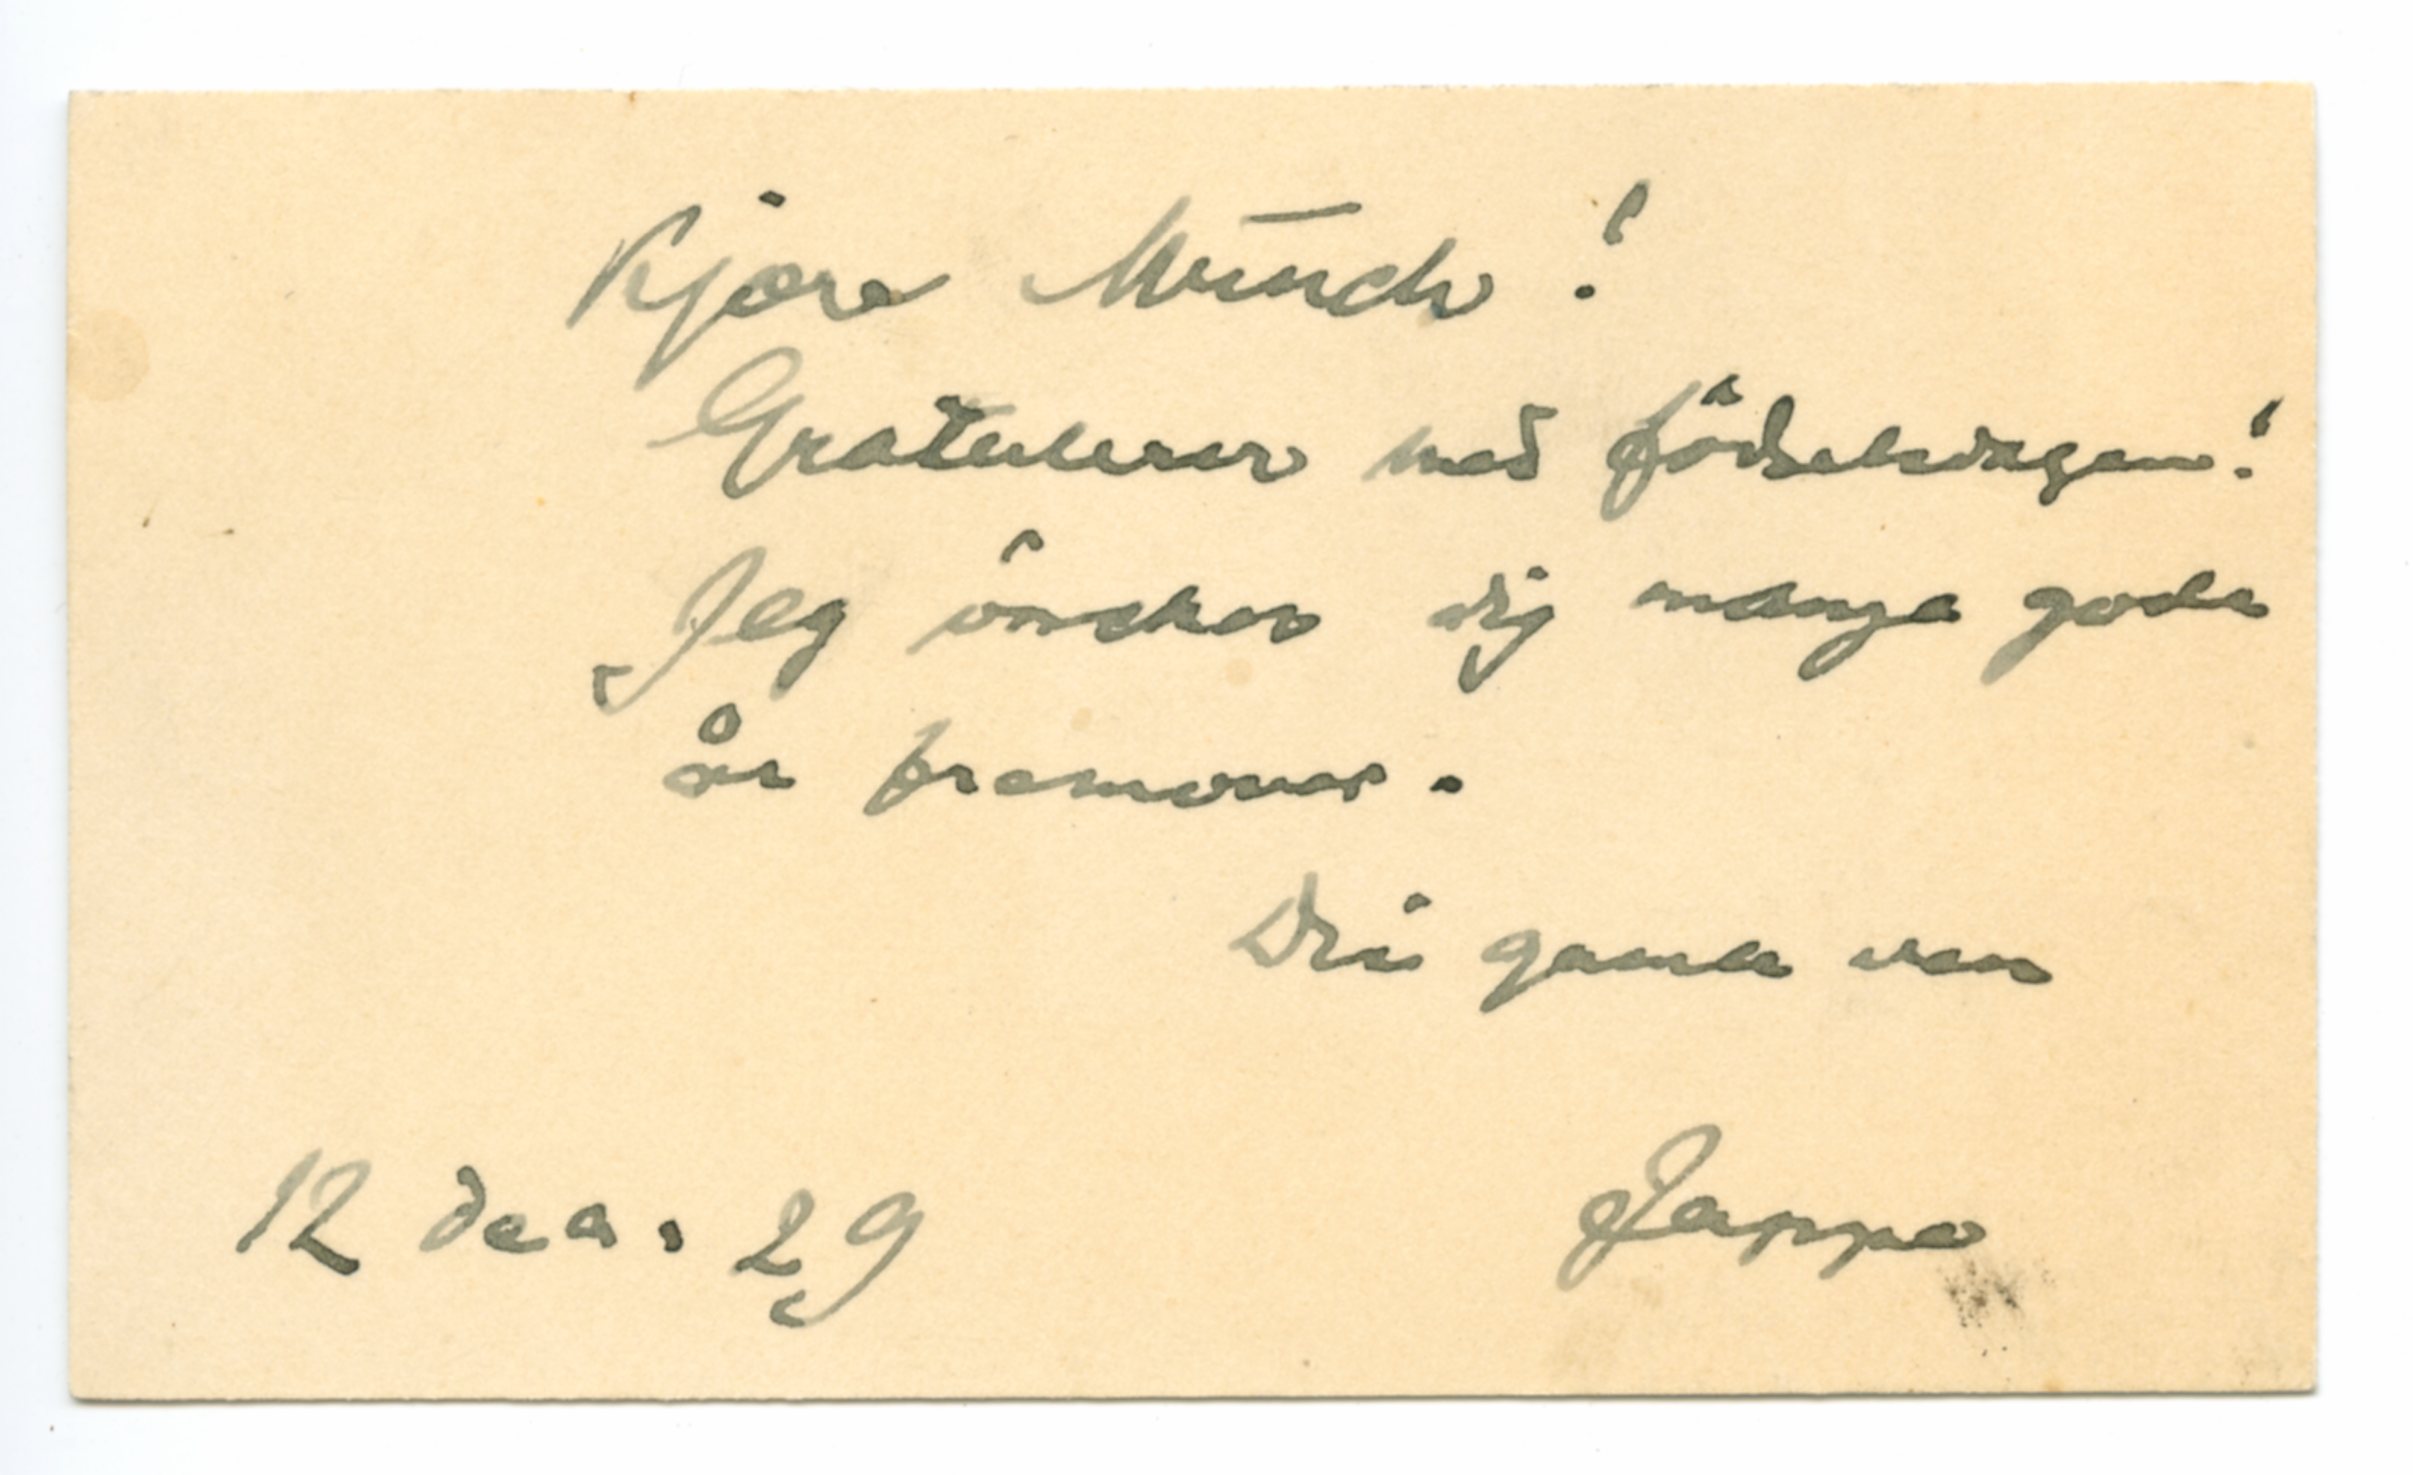 Kjære Munch!
Gratulerer med födselsdagen!
Jeg önsker dig mange gode
år fremover.
Din gamle ven
Jappe
12 des. 29